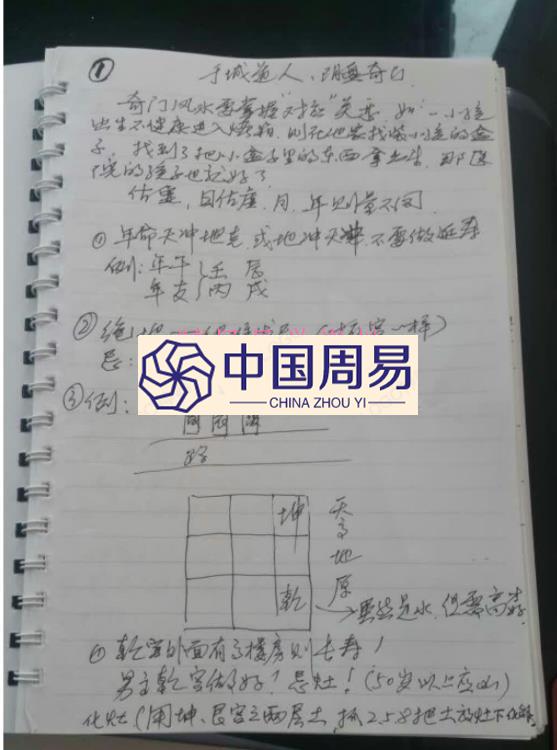 ①
于城道人、阴盘奇门
奇门风水要掌握“对应”关系 如：一小孩
出生不健康进入烤箱，则在他家找装小孩的盒
子，找到了把小盒子里的东西拿出生，那医
院的孩子也就好了
估量，日估度、月、年则量不同
① 年命天冲地克，或地冲天冲 不要做延寿
例：年午 壬 辰
年支 丙 戌
② 绝地
忌：
中国周易
CHINA ZHOU YI
③例：
路
坤 天高地原
乾 虽然是水，但要高才好
① 乾宫外面有了楼房则长寿！
男主乾宫做好！忌灶！（50岁以上应凶）
化灶（用坤、艮宫之两层土，抓2.5.8把土放灶下化解